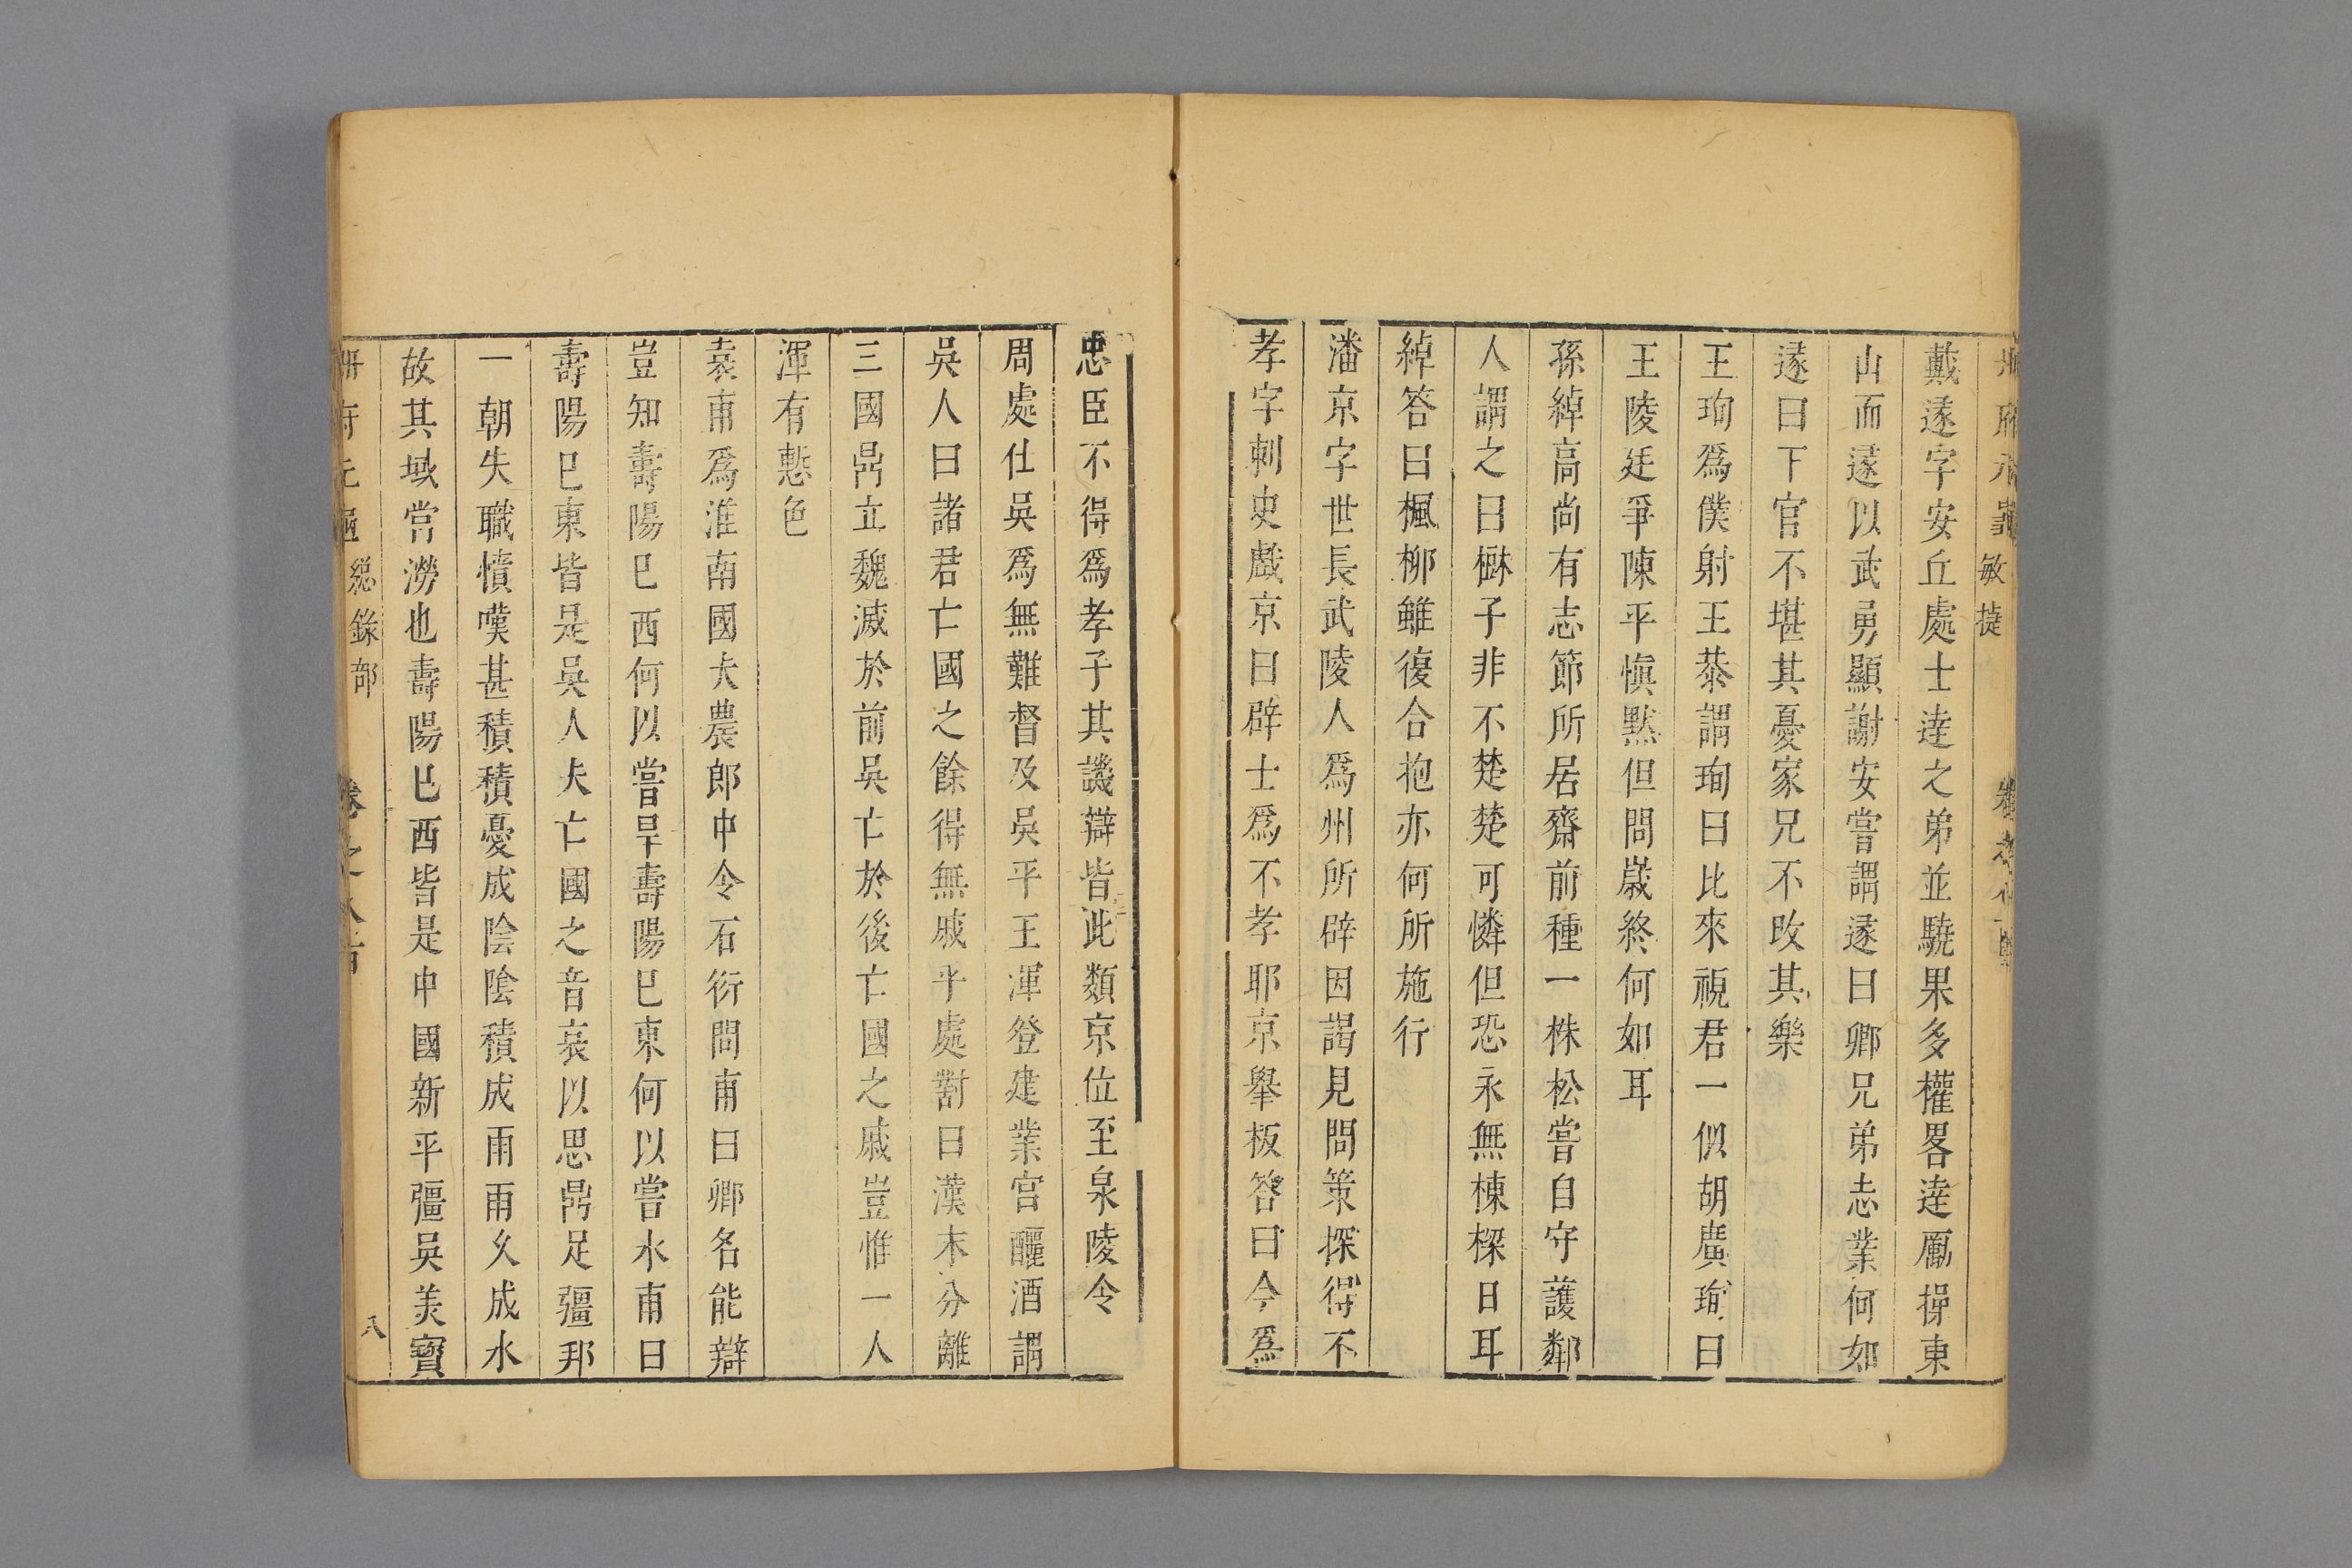 冊府元龜敏捷
戴遂字安丘處士逹之弟並驍果多權畧逹厲操東
山而遂以武勇顯謝安嘗謂遂曰卿兄弟志業何如
遂曰下官不堪其憂家兄不攺其樂
王珣爲僕射王恭謂珣曰比來視君一似胡廣珣曰
王陵廷爭陳平愼黙但問歲終何如耳
孫綽高尚有志節所居齋前種一株松嘗自守護鄰
人謂之曰樹子非不楚楚可憐但恐永無棟樑日耳
綽答曰楓柳雖復合抱亦何所施行
潘京字世長武陵人爲州所辟因謁見問策探得不
孝字刺史戲京曰辟士爲不孝耶京舉板答曰今爲
忠臣不得爲孝子其譏辯皆此類京位至泉陵令
周處仕吳爲無難督及吳平王渾登建業宮釃酒謂
吳人曰諸君亡國之餘得無戚乎處對曰漢末分離
三國鼎立魏滅於前吳亡於後亡國之戚豈惟一人
渾有慙色
袁甫爲淮南國大農郎中令石衍問甫曰卿名能辯
豈知壽陽巳西何以嘗旱壽陽巳東何以嘗水甫曰
壽陽巳東皆是吳人夫亡國之音哀以思鼎足彊邦
一朝失職憤嘆甚積積憂成陰陰積成雨雨久成水
故其域嘗澇也壽陽巳西皆是中國新平彊吳美寶
冊府元龜總錄部
八